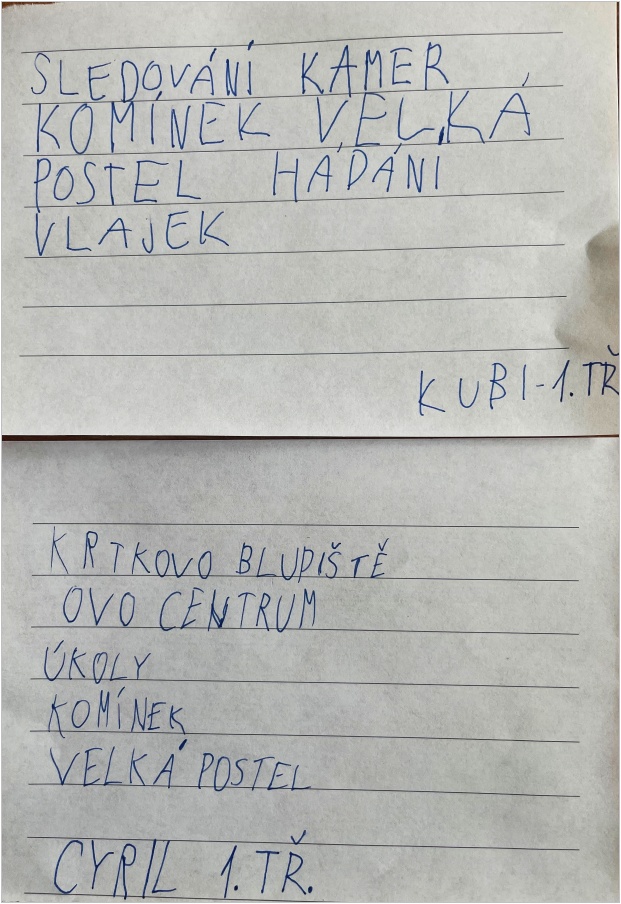 SLEDOVÁNÍ KAMER
KOMÍNEK VELKÁ
POSTEL HÁDÁNÍ
VLAJEK
KUBI-1.TŘ
KRTKOVO BLUDIŠTĚ
OVO CENTRUM
ÚKOLY
KOMÍNEK
VELKÁ POSTEL
CYRIL 1.TŘ.